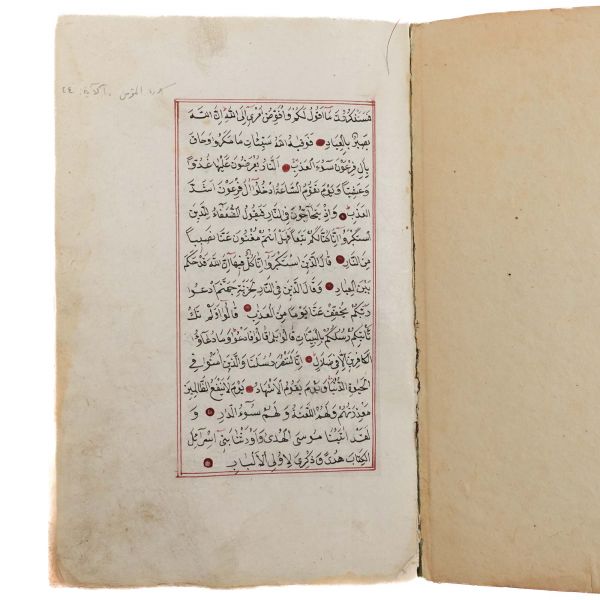 المؤمن الآية
فستذكرون ما اقول لكم وافوض امرى الى الله ان الله
بصير بالعباد فوقيه الله سيئات ما مكروا وحاق
بال فرعون سوء العذاب النار يعرضون عليها غدوا
وعشيا ويوم تقوم الساعة ادخلوا ال فرعون اشد
العذاب واذ يتحاجون في النار فيقول الضعفاء للذين
استكبروا انا كنا لكم تبعا فهل انتم مغنون عنا نصيبا
من النار قال الذين استكبروا انا كل فيها ان الله قد حكم
بين العباد وقال الذين في النار لخزنة جهنم ادعوا
ربكم يخفف عنا يوما من العذاب قالوا اولم تك
تاتيكم رسلكم بالبينات قالوا بلى قالوا فادعوا وما دعاؤا
الكافرين الا في ضلال انا لننصر رسلنا والذين امنوا في
الحيوة الدنيا ويوم يقوم الاشهاد يوم لا ينفع الظالمين
معذرتهم ولهم اللعنة ولهم سوء الدار و
لقد اتينا موسى الهدى واورثنا بني اسرائيل
الكتاب هدى وذكرى لاولى الالباب